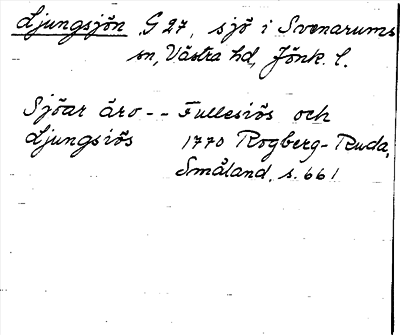 Ljungsjön G 27, sjö i Svenarums
sn, Västra hd, Jönk. l.
Sjöar äro - - Fullesiös och
Ljungsiös 1770 Rogberg-Ruda,
Småland, s. 661